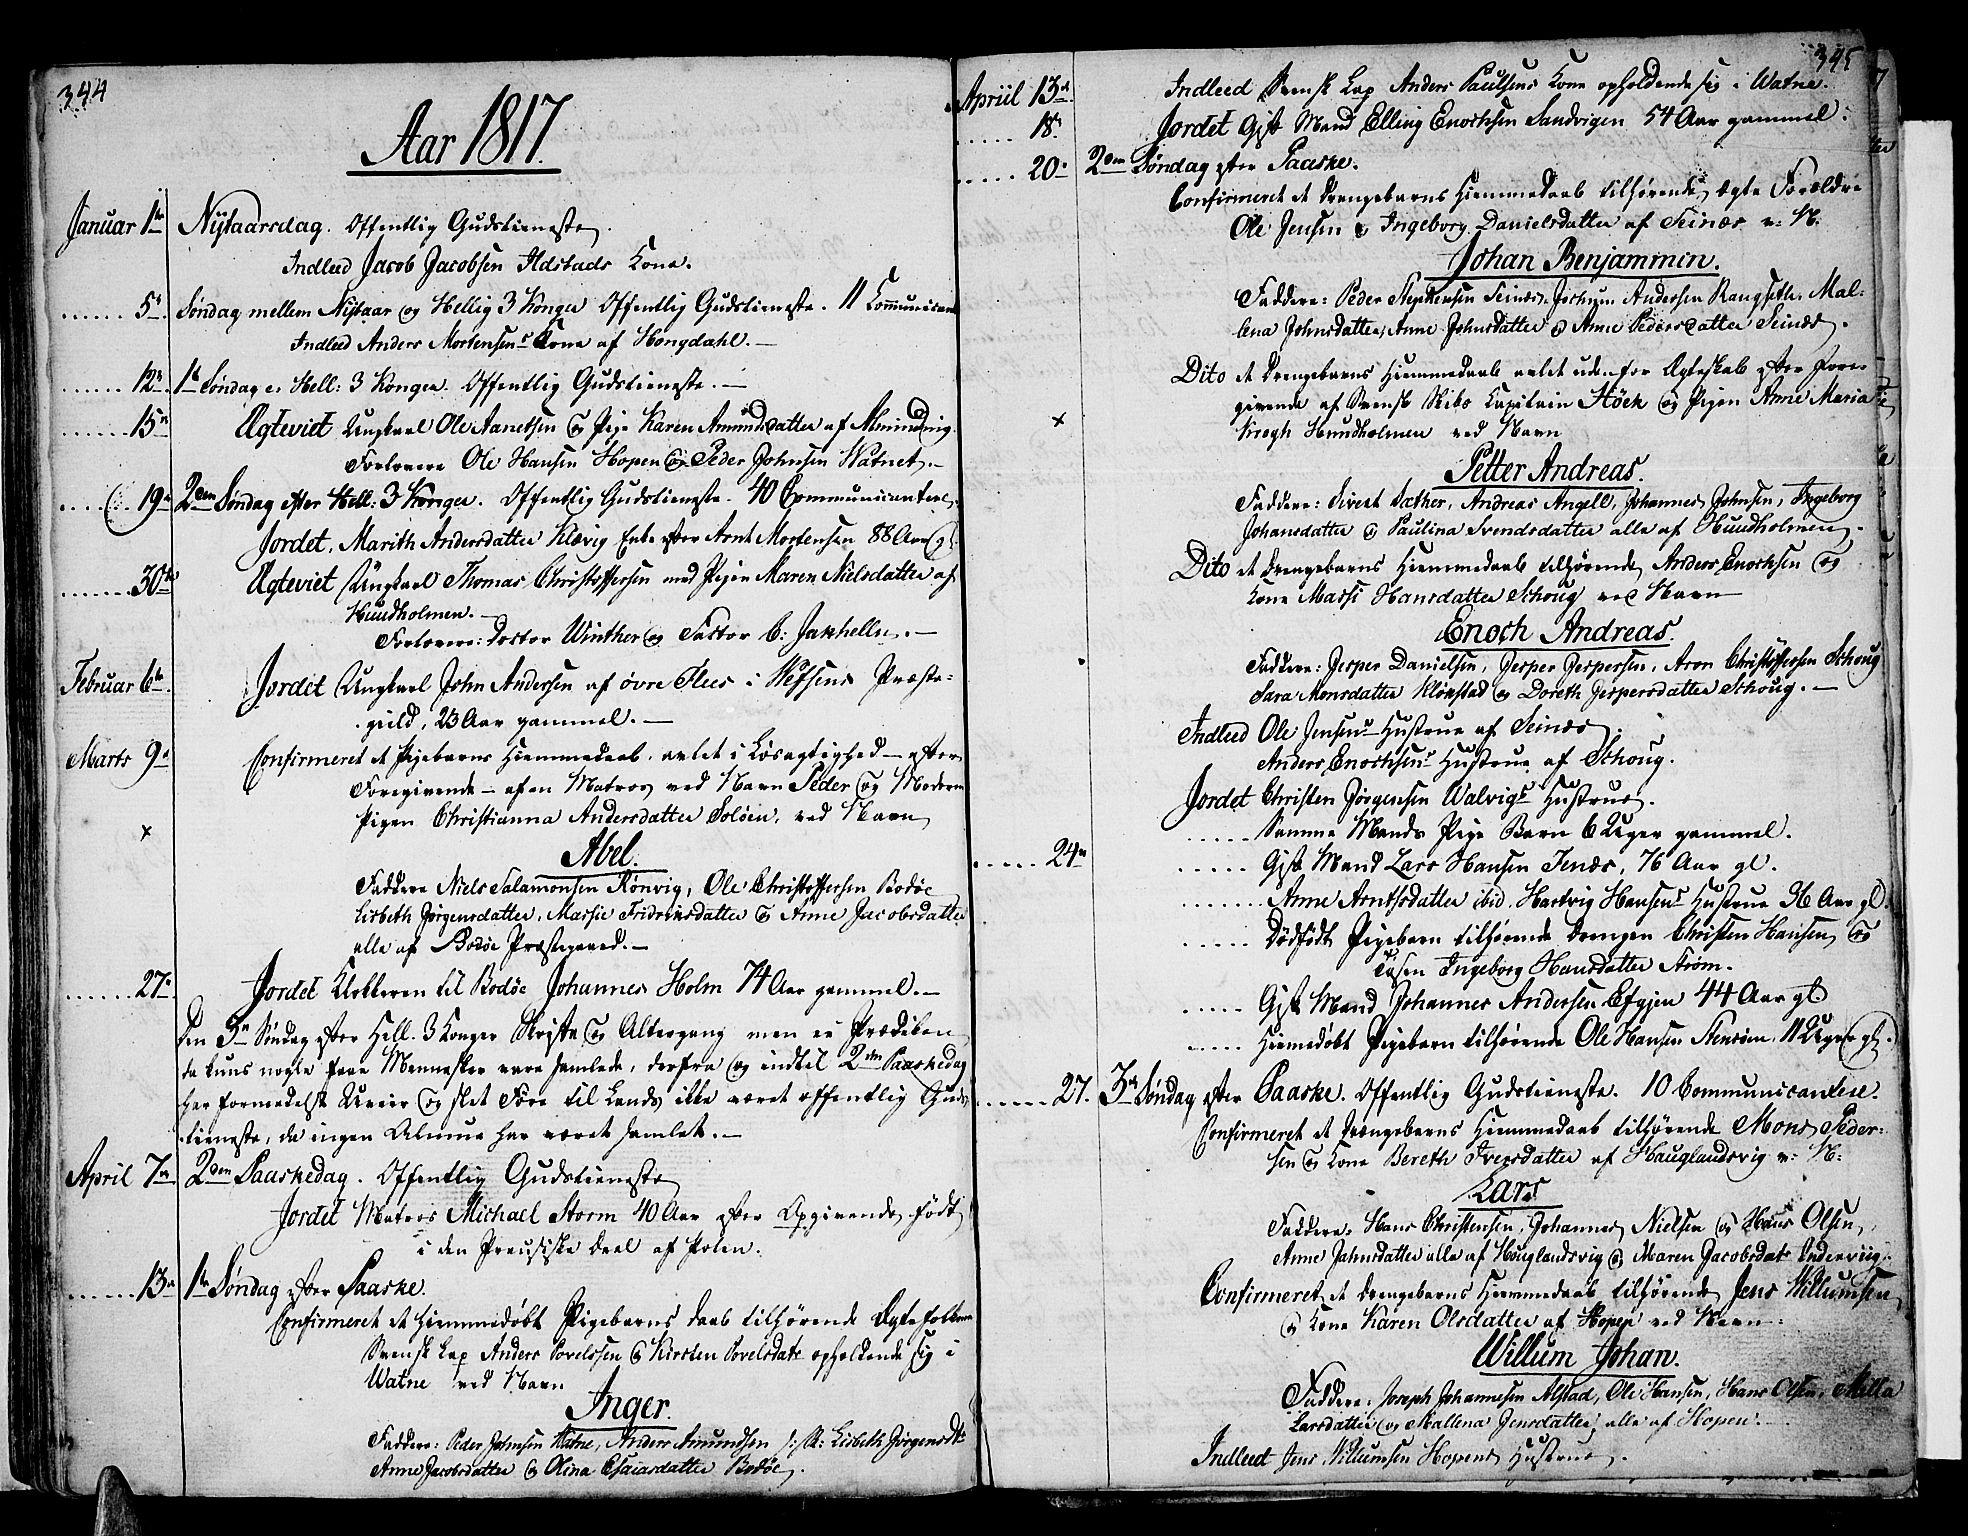 344
Aar 1817.
Januar 1ste Nytaarsdag. Offentlig Gudstieneste.
Indleed Jacob Jacobsen Ildstads Kone.
5te Søndag mellem Nytaar og Hellig 3 Konger Offentlig Gudstieneste. 11 Communicant
Indleed Anders Mortensens Kone af Hongdahl.
12te 1te Søndag e. Hell: 3 Konger. Offentlig Gudstieneste.
15de Ægteviet Ungkarl Ole Aanetsen og Pige Karen Amundsdatter af Alminding.
Forlovere Ole Hansen Hopen og Peder Johnsen Watnet.
19de 2den Søndag efter Hell: 3 Konger. Offentlig Gudstieneste. 40 Communicantere.
Jordet, Marith Andersdatter Klævig Enke efter Arnt Mortensen 88 Aar gl.
30te Ægteviet Ungkarl Thomas Christophersen med Pigen Maren Nielsdatter af
Huudholmen.
Forlovere: Doctor Winther og Factor C: Jakhelln.
Februar 6te Jordet Ungkarl John Andersen af øvre i Wefsens Præste-
gield, 23 Aar gammel.
Marts 9de Confirmeret et Pigebarns Hiemmedaab, avlet i Løsagtighed - efter
Foregivende - af en Matros ved Navn Peder og Moderen
Pigen Christianna Andersdatter Soløen, ved Navn
x
Abel.
Faddere Niels Salamonsen Rønvig, Ole Christophersen Bodøe
Lisbeth Jørgensdatter, Massie Fridrichsdatter og Anne Jacobsdatter
alle af Bodøe Præstegaard.
27de Jordet Klokkeren til Bodøe Johannes Holm 74 Aar gammel.
Den 3de Søndag efter Hell. 3 Konger og Altergang men ei Prædiken
da kuns nogle faae Mennesker vare samlede, derfra og indtil 2den Paaskedag
har formedelst Uveir og slet Føre til Lands ikke været offentlig Guds
tieneste, da ingen Almue har været samlet.
April 7de 2den Paaskedag. Offentlig Gudstieneste
Jordet Matros Michael Storm 40 Aar efter Opgivende født
i den Preusiske Deel af Polen.
13de 1te Søndag efter Paaske.
Confirmeret et hiemmedøbt Pigebarns Daab tilhørende Ægtefolkene
Svensk Lap Anders Povelssen og Kirsten Povelsdatr opholdende sig i
Watne ved Navn
Inger.
Faddere: Peder Johnsen Watne, Anders Amundsen Lisbeth Jørgensdtr
Anne Jacobsdatter og Olina Esaiasdatter Bodøe.
345
Apriil 13de Indleed Svensk Lap Anders Paulsens Kone opholdende sig i Watne.
18de Jordet Gift Mand Elling Enochsen Sandvigen 54 Aar gammel.
20de 2den Søndag efter Paaske.
Confirmeret et Drengebarns Hiemmedaab tilhørende Ægte Forældre
Ole Jensen og Ingeborg Danielsdatter af Seinæs v: N:
Johan Benjammin.
Faddere: Peder Stephensen Seinæs, Jochum Andersen Rangseth, Mal-
lena Johnsdatter, Anne Johnsdatter og Anne Pedersdatter Seinæs.
Dito et Drengebarns Hiemmedaab avlet uden for Ægteskab efter Fore-
givende af Svensk Skibs Capitain Höek og Pigen Anne Maria
x
Krogh Huudholmen ved Navn
Petter Andreas.
Faddere: Sivert Sæther, Andreas Angell, Johannes Johnsen, Ingeborg
Johansdatter og Paulina Svendsdatter alle af Huudholmen.
Dito et Drengebarns Hiemmedaab tilhørende Anders Enochsen og
Kone Massi Hansdatter Schoug ved Navn
Enoch Andreas.
Faddere: Jesper Danielsen, Jesper Jespersen, Aron Christophersen Schoug
Sara Monsdatter Klonstad og Doreth Jespersdatter Schoug.
Indleed Ole Jensens Hustrue af Seinæs
Anders Enochsens Hustrue af Schoug.
Jordet Christen Jørgensen Walvigs Hustrue.
Samme Mands Pige Barn 6 Uger gammel.
24de Gift Mand Lars Hansen Tenæs, 76 Aar gl.
Anne Arntsdatter ibid. Hartvig Hansens Hustrue 36 Aar gl.
Dødfødt Pigebarn tilhørende Drengen Christen Hansen og
Tøsen Ingeborg Hansdatter Strøm.
Gift Mand Johannes Andersen Efjen 44 Aar gl.
Hiemedøbt Pigebarn tilhørende Ole Hansen Stensøen, 11 Uger gl.
27. 3de Søndag efter Paaske. Offentlig Gudstieneste. 10 Communicantere.
Confirmeret et Drengebarns Hiemmedaab tilhørende Mons Peder-
sen og Kone Bereth Iversdatter af Hauglandsvig v: N:
Lars
Faddere: Hans Christensen, Johannes Nielsen og Hans Olsen,
Anne Jahnsdatter alle af Houglandsvig og Maren Jacobsdatr
Confirmeret et Drengebarns Hiemmedaab tilhørende Jens Willumsen
og Kone Karen Olsdatter af Hopen ved Navn:
Willum Johan.
Faddere: Joseph Johannesen Alstad, Ole Hansen, Hans Olsen, Milla
Larsdatter og Mallena Jensdatter, alle af Hopen.
Indleed Jens Willumsen Hopens Hustrue.